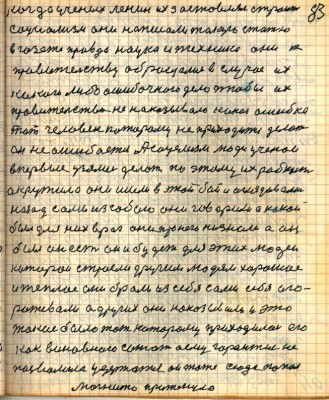 83
когда ученых ленин их заставлял строит
социализм они написали такую статю
в газете правда наука и техника они к
правителству обрасчалис в случае их
какого либо ошибочного дело чтобы их
правителство не наказывало какая ошибка
тот человек которому не приходится делат
он не ошибается А социализм люди ученые
впервые взялис делат по этому их работы
окружило они шли в этой бой и
назад сами из собою они говорили а какой
был для них враг они нужного низнали а он
был он ест он и будет для этих людей
которой строем другим людям хорошее
и теплое они брали из себя сами себя
а других они наказывали и это
такие было тот которому приходился его
как виновного тот ему гарантии не
позволила удержат он тоже сюда попал
магнито притянуло